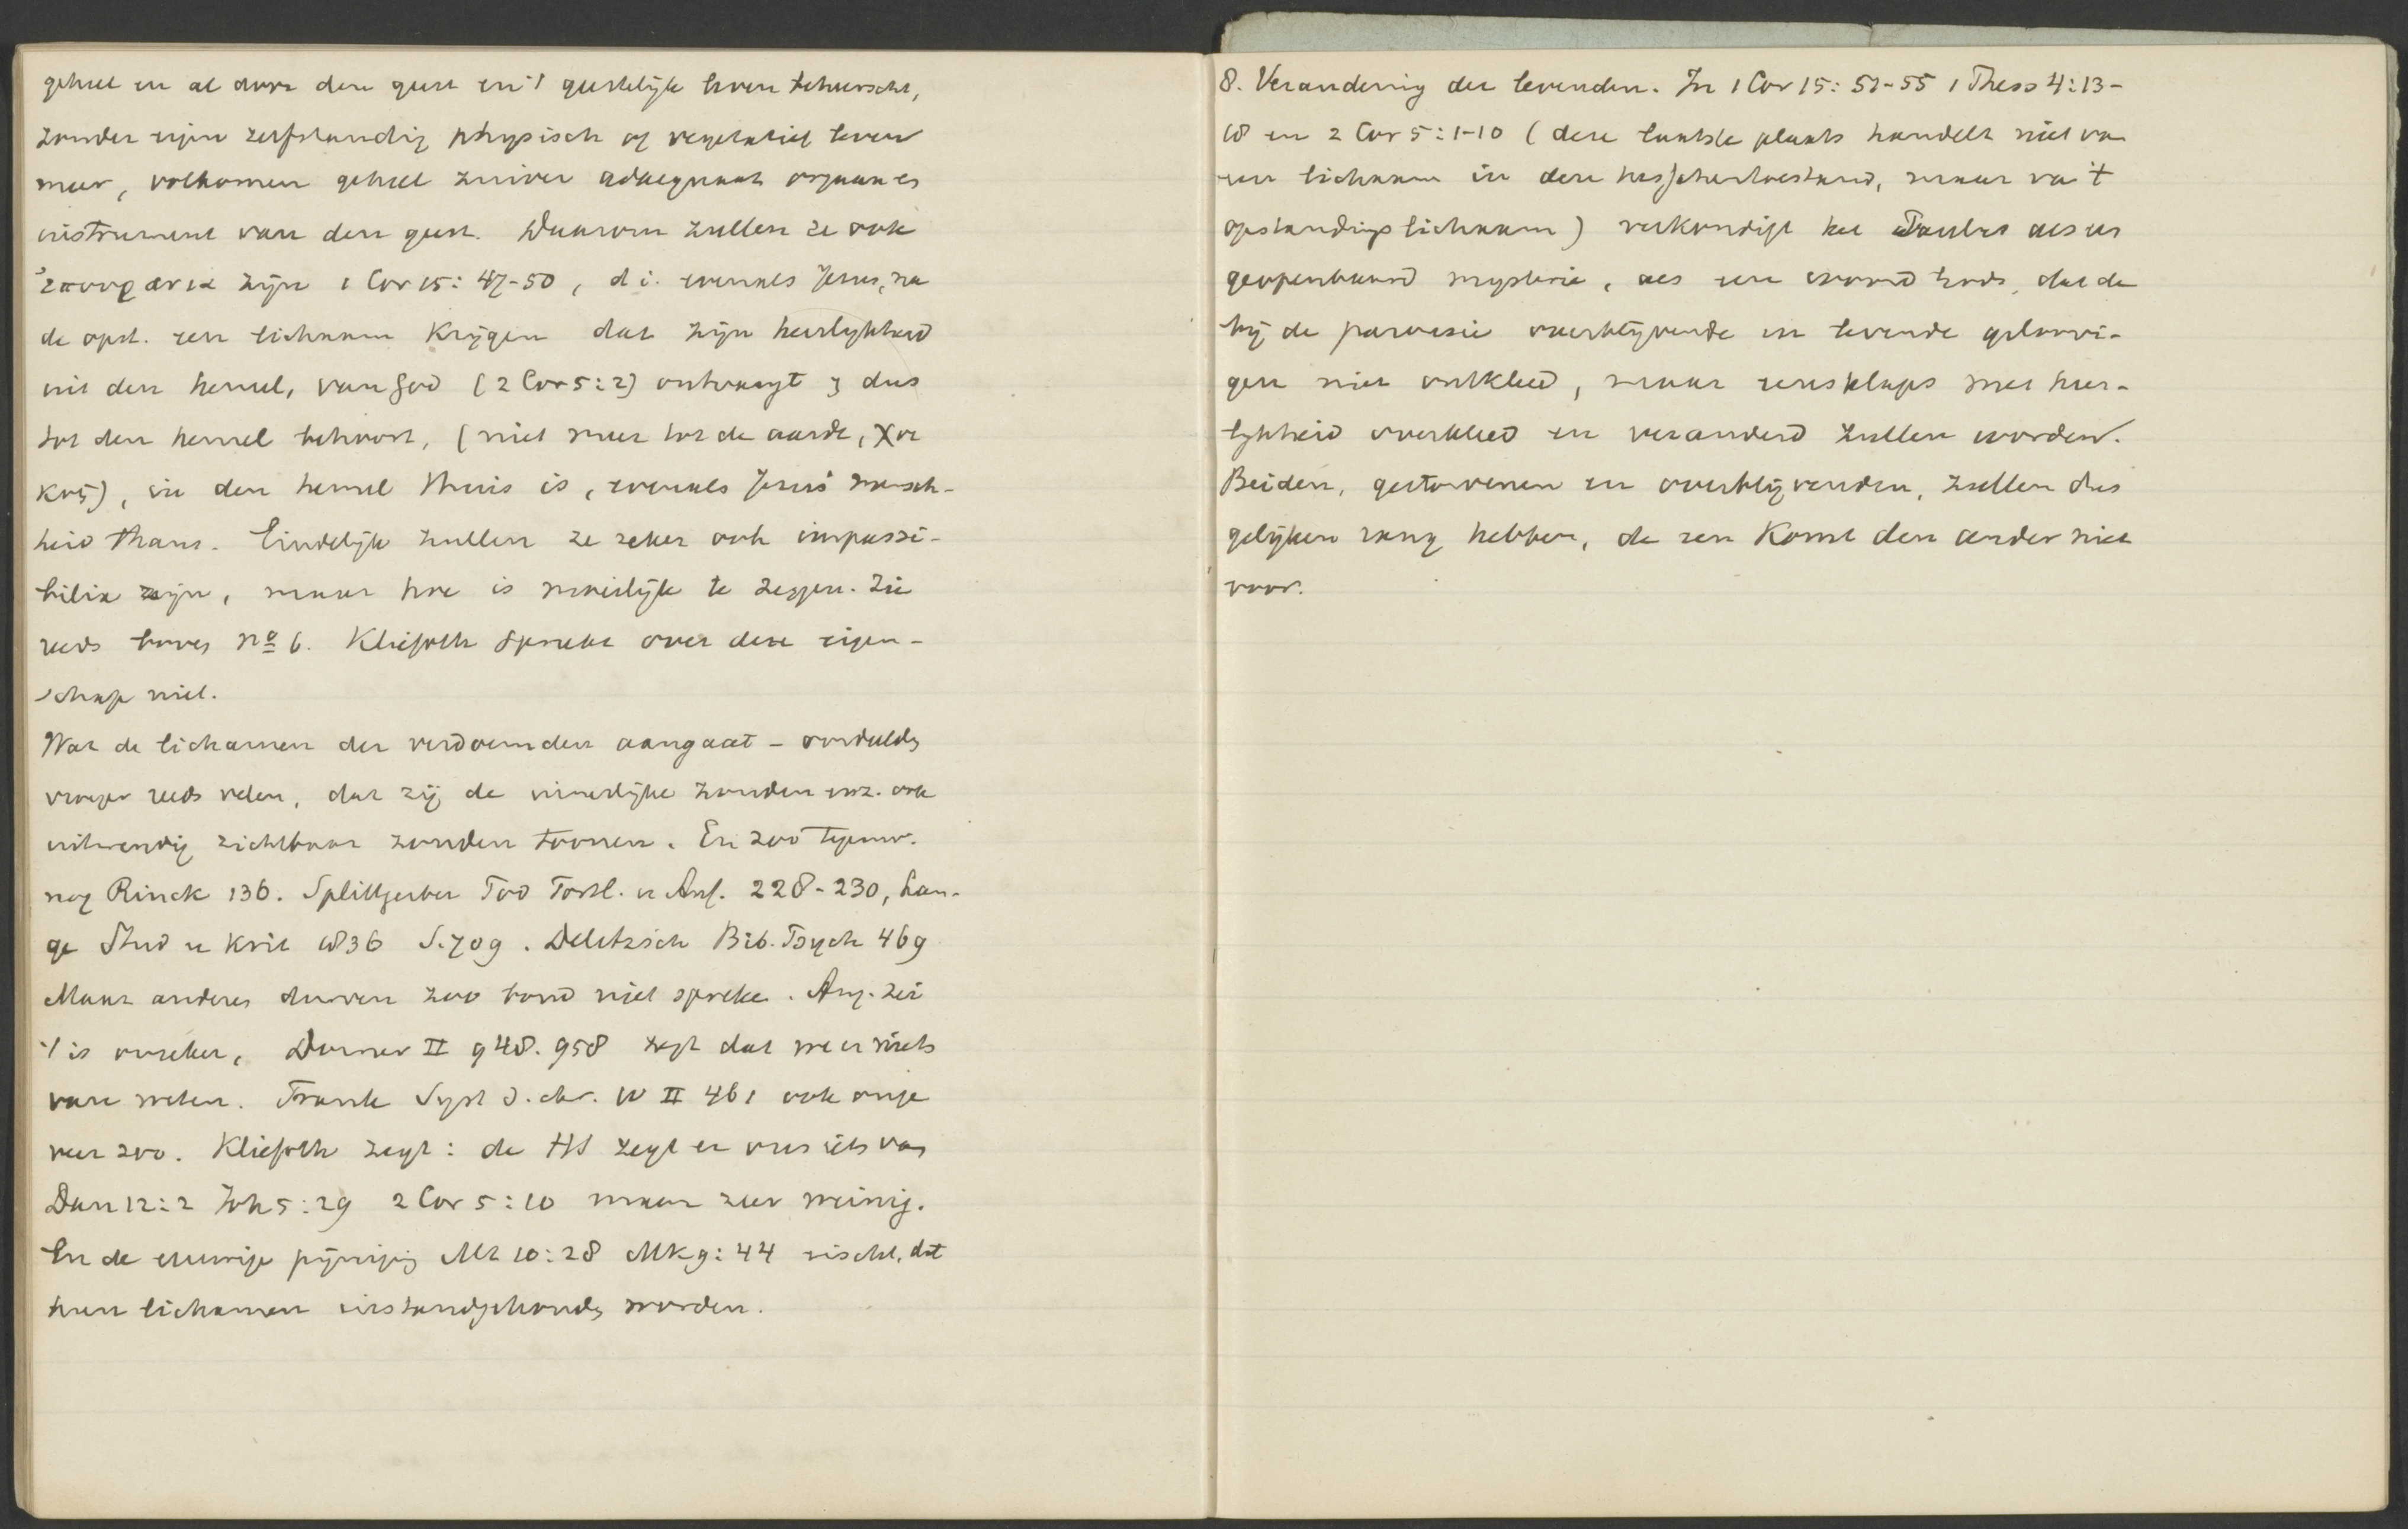 geheel en al door den geest en 't geestelijk leven beheerscht,
zonder eigen zelfstandig physisch of vegetatief leven
meer, volkomen geheel zuiver adaequaat orgaan en
instrument van den geest. Daarom zullen ze ook
ἐπουρανια zijn 1 Cor 15: 47-50, d.i. evenals Jesus, na
de opst. een lichaam krijgen dat zijn heerlykheid
uit den hemel, van God (2 Cor 5:2) ontvangt en dus
tot den hemel behoort, (niet meer tot de aarde, χοϊ
κος), in den hemel thuis is, evenals Jesus' mensch-
heid thans. Eindelijk zullen ze zeker ook impassi-
bilia zijn, maar hoe is moeilijk te zeggen. Zie
reeds boven nº 6. Kliefoth spreekt over deze eigen-
schap niet.
Wat de lichamen der verdoemden aangaat - oordeelden
vroeger reeds velen, dat zij de innerlijke zonden enz. ook
uitwendig zichtbaar zouden toonen. En zoo tegenw.
nog Rinck 136. Splittgerber Tod Fortl. u Auf. 228-230, Lan-
ge Stud u Krit 1836 S. 709. Delitzsch Bib. Psych 469
Maar anderen durven zoo boud niet spreken. Aug. zei
't is onzeker, Dorner II 948. 958 zegt dat we er niets
van weten. Frank Syst d. chr. W II 461 ook onge
veer zoo. Kliefoth zegt: de HS zegt er ons iets van
Dan 12:2 Joh 5:29 2 Cor 5:10 maar zeer weinig.
En de eeuwige pijniging Mt 10:28 Mk 9:44 eischt, dat
hun lichamen instandgehouden worden.
8. Verandering der levenden. In 1 Cor 15: 51-55 1 Thess 4:13-
18 en 2 Cor 5:1-10 (deze laatste plaats handelt niet van
een lichaam in den tusschentoestand, maar van 't
opstandingslichaam) verkondigt het Paulus als een
geopenbaard mysterie, als een woord Gods, dat de
bij de parousie overblijvende en levende geloovi-
gen niet ontkleed, maar eensklaps met heer-
lykheid overkleed en veranderd zullen worden.
Beiden, gestorvenen en overblijvenden, zullen dus
gelijken rang hebben, de een komt den ander niet
voor.